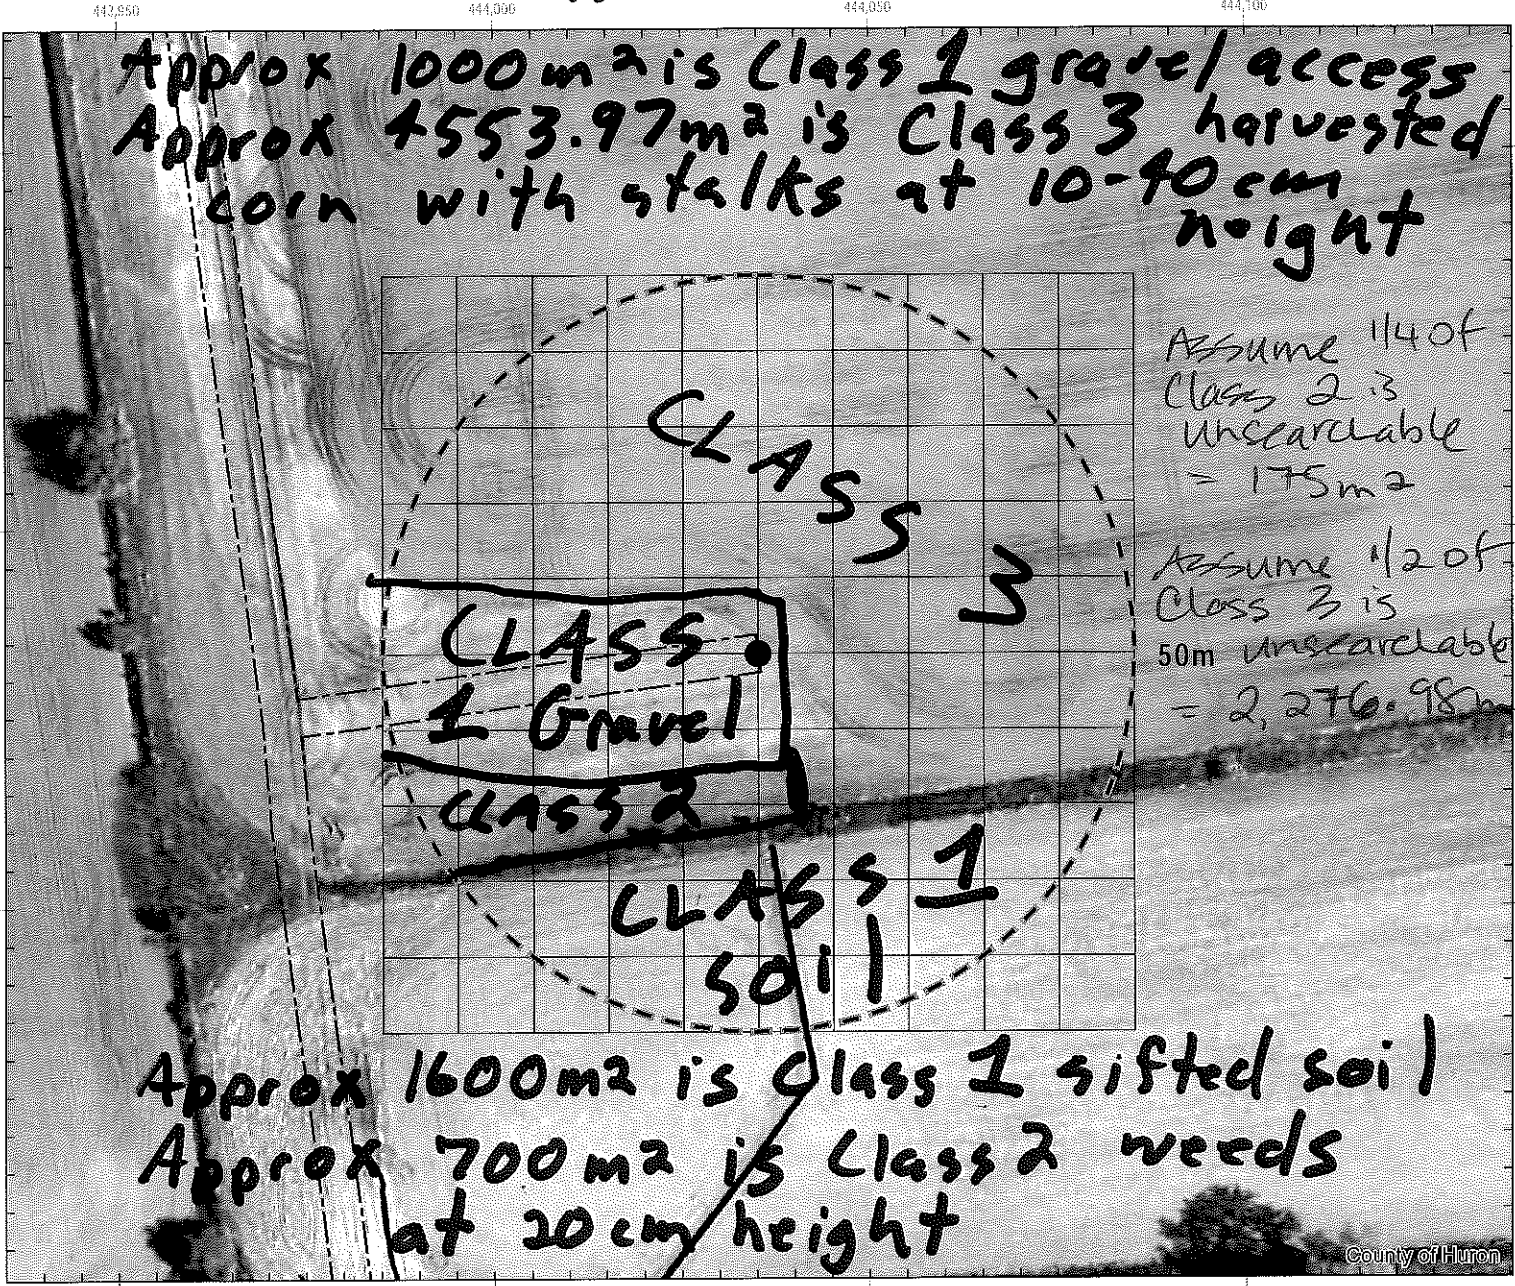 443,950 444,000 444,050 444,100
Approx 1000m² is Class 1 gravel access
Approx 4553.97m² is Class 3 harvested
corn with stalks at 10-40cm
height
Assume 1/4 of
Class 2 is
unsearchable
= 175m2
CLASS 3
Assume 1/2 of
Class 3 is
50m unsearchable
= 2,276.98m
CLASS
1 Gravel
CLASS 2
CLASS 1
soil
Approx 1600m2 is Class 1 sifted soil
Approx 700m2 is Class 2 weeds
at 20cm height
County of Huron